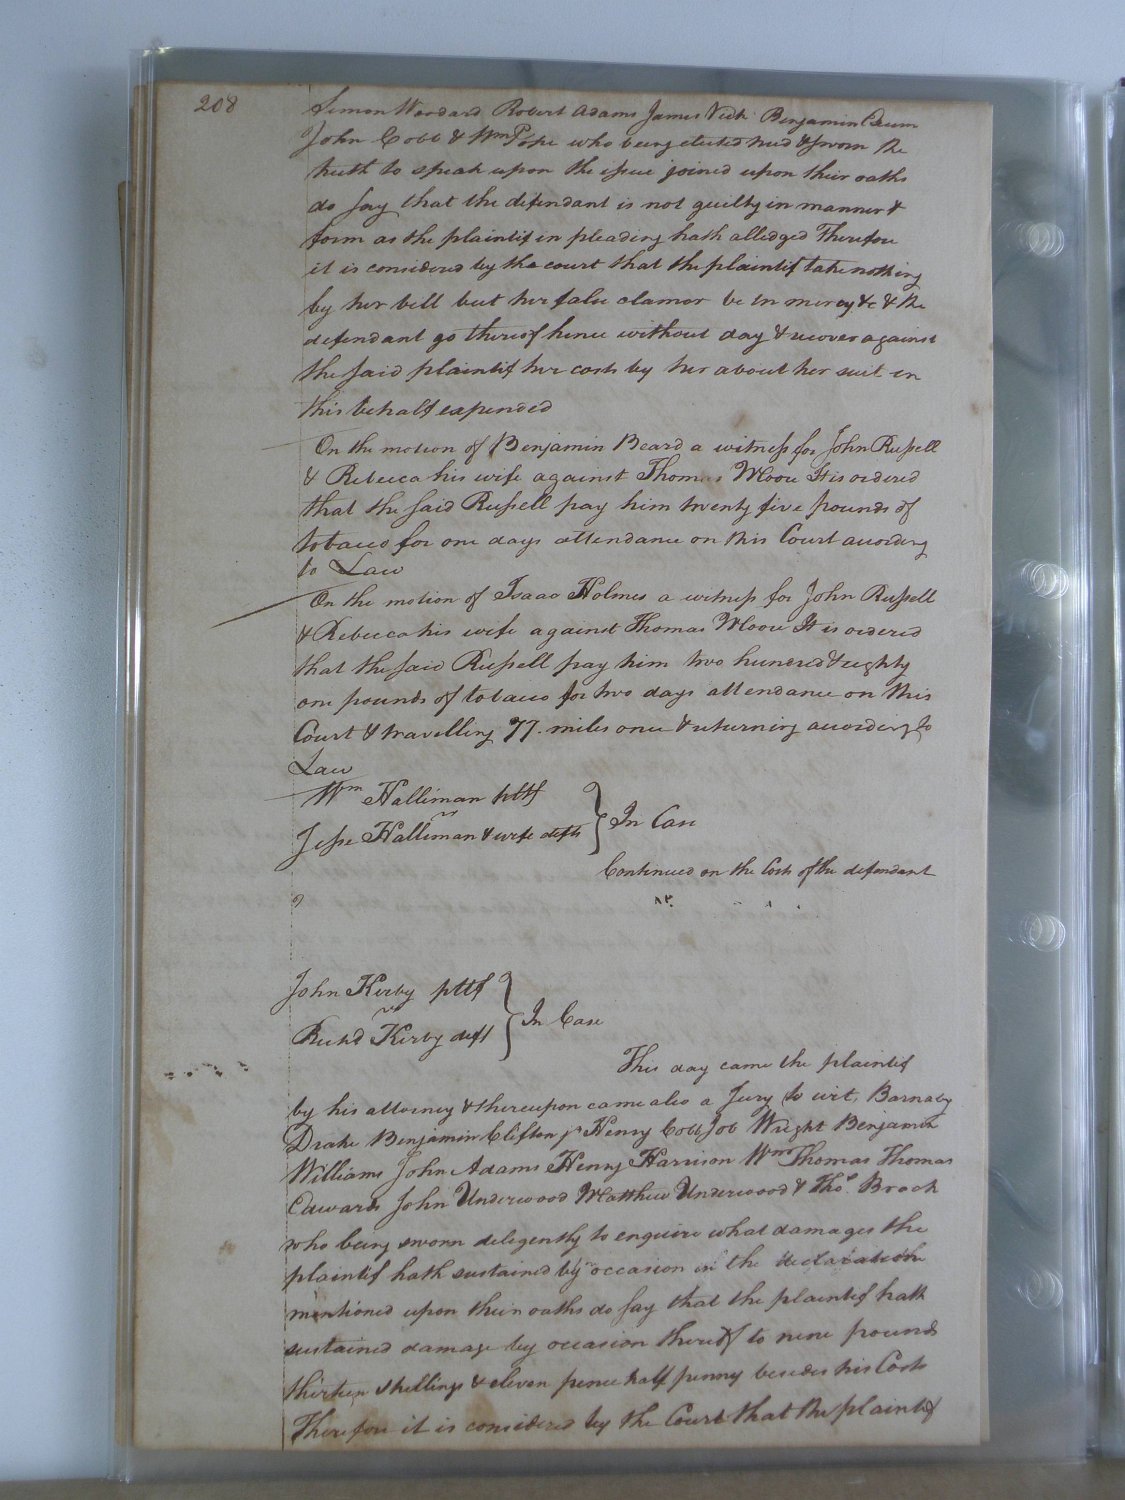 208
Simon Woodard Robert Adams James Vick Benjamin Crum
John Cobb & Wm Pope who being elected tried & sworn the
truth to speak upon the issue joined upon their oaths
do say that the defendant is not guilty in manner &
form as the plaintif in pleading hath alledged Therefore
it is considered by the court that the plaintif take nothing
by her bill but her false clamor be in mercy &c & the
defendant go thereof hence without day & recover against
the said plaintif her costs by her about her suit in
this behalf expended
On the motion of Benjamin Beard a witness for John Russell
& Rebecca his wife against Thomas Moore It is ordered
that the said Russell pay him twenty five pounds of
tobacco for one days attendance on this Court according
to Law
On the motion of Isaac Holmes a witness for John Russell
& Rebecca his wife against Thomas Moore It is ordered
that the said Russell pay him two hundred & eighty
one pounds of tobacco for two days attendance on this
Court & travelling 77. miles once & returning according to
Law
Wm Halliman pltf
Jesse Halliman & wife defts } In Case
Continued on the Costs of the defendant
John Kirby pltf
Richd Kirby deft } In Case
This day came the plaintif
by his attorney & thereupon came also a Jury to wit, Barnaby
Drake Benjamin Clifton jr Henry Cobb Job Wright Benjamin
Williams John Adams Henry Harrison Wm Thomas Thomas
Edwards John Underwood Matthew Underwood & Thos. Brock
who being sworn deligently to enquire what damages the
plaintif hath sustained by occasion in the declaration
mentioned upon their oaths do say that the plaintif hath
sustained damage by occasion thereof to nine pounds
thirteen shillings & eleven pence half penny besides his Costs
Therefore it is considered by the Court that the plaintif